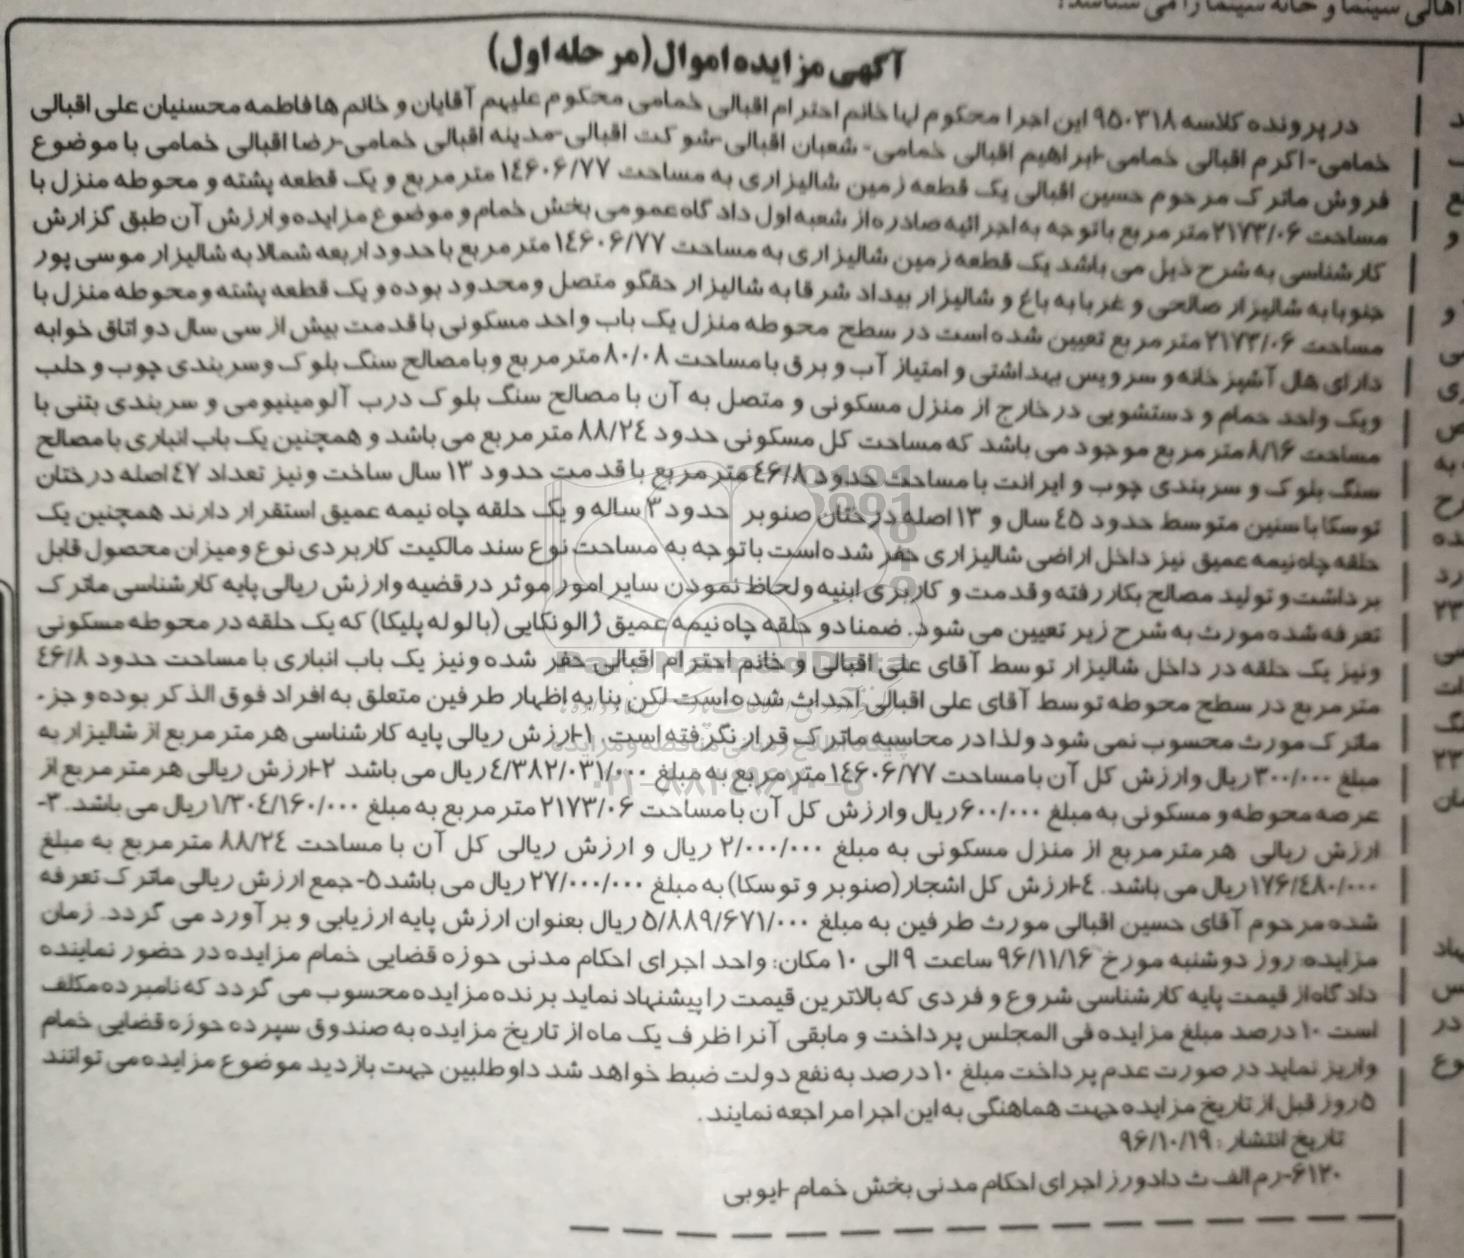 اهالی سینما و خانه سینما را می شناسد؟
آگهی مزایده اموال(مرحله اول)
در پرونده کلاسه ۹۵۰۳۱۸ این اجرا محکوم لها خانم احترام اقبالی خمامی محکوم علیهم آقایان و خانم ها فاطمه محسنیان علی اقبالی
خمامی- اکرم اقبالی خمامی-ابراهیم اقبالی خمامی- شعبان اقبالی-شوکت اقبالی-مدینه اقبالی خمامی-رضا اقبالی خمامی با موضوع
فروش ماترک مرحوم حسین اقبالی یک قطعه زمین شالیزاری به مساحت ۱٤۶۰۶/۷۷ متر مربع و یک قطعه پشته و محوطه منزل با
مساحت ۲۱۷۳/۰۶ متر مربع با توجه به اجرائیه صادره از شعبه اول دادگاه عمومی بخش خمام و موضوع مزایده و ارزش آن طبق گزارش
کارشناسی به شرح ذیل می باشد یک قطعه زمین شالیزاری به مساحت ۱٤۶۰۶/۷۷ متر مربع با حدود اربعه شمالا به شالیزار موسی پور
جنوبا به شالیزار صالحی و غربا به باغ و شالیزار بیداد شرقا به شالیزار حقگو متصل و محدود بوده و یک قطعه پشته و محوطه منزل با
مساحت ۲۱۷۳/۰۶ متر مربع تعیین شده است در سطح محوطه منزل یک باب واحد مسکونی با قدمت بیش از سی سال دو اتاق خوابه
دارای هال آشپزخانه و سرویس بهداشتی و امتیاز آب و برق با مساحت ۸۰/۰۸ متر مربع و با مصالح سنگ بلوک و سربندی چوب و حلب
ویک واحد حمام و دستشویی در خارج از منزل مسکونی و متصل به آن با مصالح سنگ بلوک درب آلومینیومی و سربندی بتنی با
مساحت ۸/۱۶ متر مربع موجود می باشد که مساحت کل مسکونی حدود ۸۸/۲٤ متر مربع می باشد و همچنین یک باب انباری با مصالح
سنگ بلوک و سربندی چوب و ایرانت با مساحت حدود ٤۶/۸ متر مربع با قدمت حدود ۱۳ سال ساخت ونیز تعداد ٤۷ اصله درختان
توسکا با سنین متوسط حدود ٤۵ سال و ۱۳ اصله درختان صنوبر حدود ۳ ساله و یک حلقه چاه نیمه عمیق استقرار دارند همچنین یک
حلقه چاه نیمه عمیق نیز داخل اراضی شالیزاری حفر شده است با توجه به مساحت نوع سند مالکیت کاربردی نوع و میزان محصول قابل
برداشت و تولید مصالح بکار رفته و قدمت و کاربری ابنیه و لحاظ نمودن سایر امور موثر در قضیه و ارزش ریالی پایه کارشناسی ماترک
تعرفه شده مورث به شرح زیر تعیین می شود. ضمنا دو حلقه چاه نیمه عمیق ژالونکایی (با لوله پلیکا) که یک حلقه در محوطه مسکونی
ونیز یک حلقه در داخل شالیزار توسط آقای علی اقبالی و خانم احترام اقبالی حفر شده ونیز یک باب انباری با مساحت حدود ٤۶/۸
متر مربع در سطح محوطه توسط آقای علی اقبالی احداث شده است لکن بنا به اظهار طرفین متعلق به افراد فوق الذکر بوده و جزء
ماترک مورث محسوب نمی شود و لذا در محاسبه ماترک قرار نگرفته است. ۱-ارزش ریالی پایه کارشناسی هر متر مربع از شالیزار به
مبلغ ۳۰۰/۰۰۰ ریال و ارزش کل آن با مساحت ۱٤۶۰۶/۷۷ متر مربع به مبلغ ٤/۳۸۲/۰۳۱/۰۰۰ ریال می باشد ۲-ارزش ریالی هر متر مربع از
عرصه محوطه و مسکونی به مبلغ ۶۰۰/۰۰۰ ریال و ارزش کل آن با مساحت ۲۱۷۳/۰۶ متر مربع به مبلغ ۱/۳۰٤/۱۶۰/۰۰۰ ریال می باشد. ۳-
ارزش ریالی هر متر مربع از منزل مسکونی به مبلغ ۲/۰۰۰/۰۰۰ ریال و ارزش ریالی کل آن با مساحت ۸۸/۲٤ متر مربع به مبلغ
۱۷۶/٤۸۰/۰۰۰ ریال می باشد. ٤-ارزش کل اشجار (صنوبر و توسکا) به مبلغ ۲۷/۰۰۰/۰۰۰ ریال می باشد ۵-جمع ارزش ریالی ماترک تعرفه
شده مرحوم آقای حسین اقبالی مورث طرفین به مبلغ ۵/۸۸۹/۶۷۱/۰۰۰ ریال بعنوان ارزش پایه ارزیابی و برآورد می گردد. زمان
مزایده: روز دوشنبه مورخ ۹۶/۱۱/۱۶ ساعت ۹ الی ۱۰ مکان: واحد اجرای احکام مدنی حوزه قضایی خمام مزایده در حضور نماینده
دادگاه از قیمت پایه کارشناسی شروع و فردی که بالاترین قیمت را پیشنهاد نماید برنده مزایده محسوب می گردد که نامبرده مکلف
است ۱۰ درصد مبلغ مزایده فی المجلس پرداخت و مابقی آنرا ظرف یک ماه از تاریخ مزایده به صندوق سپرده حوزه قضایی خمام
واریز نماید در صورت عدم پرداخت مبلغ ۱۰ درصد به نفع دولت ضبط خواهد شد داوطلبین جهت بازدید موضوع مزایده می توانند
۵ روز قبل از تاریخ مزایده جهت هماهنگی به این اجرا مراجعه نمایند.
تاریخ انتشار: ۹۶/۱۰/۱۹
۶۱۲۰-رم الف ث دادورز اجرای احکام مدنی بخش خمام -ایوبی
ParsNamadData
۰۲۱-۸۸۳٤۹۶۷۰-۵